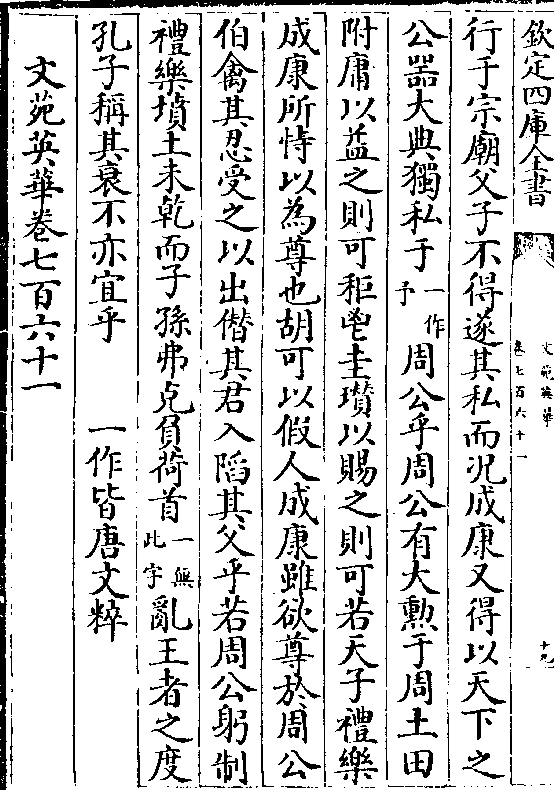 欽定四庫全書
文苑英華
卷七百六十一
十九
行于宗廟父子不得遂其私而况成康又得以天下之
公器大典獨私于一作予周公乎周公有大勲于周土田
附庸以益之則可秬鬯圭瓚以賜之則可若天子禮樂
成康所恃以為尊也胡可以假人成康雖欲尊於周公
伯禽其忍受之以出僭其君入䧟其父乎若周公躬制
禮樂墳土未乾而子孫弗克負荷首一無此字亂王者之度
孔子稱其衰不亦宜乎　一作皆唐文粹
文苑英華卷七百六十一